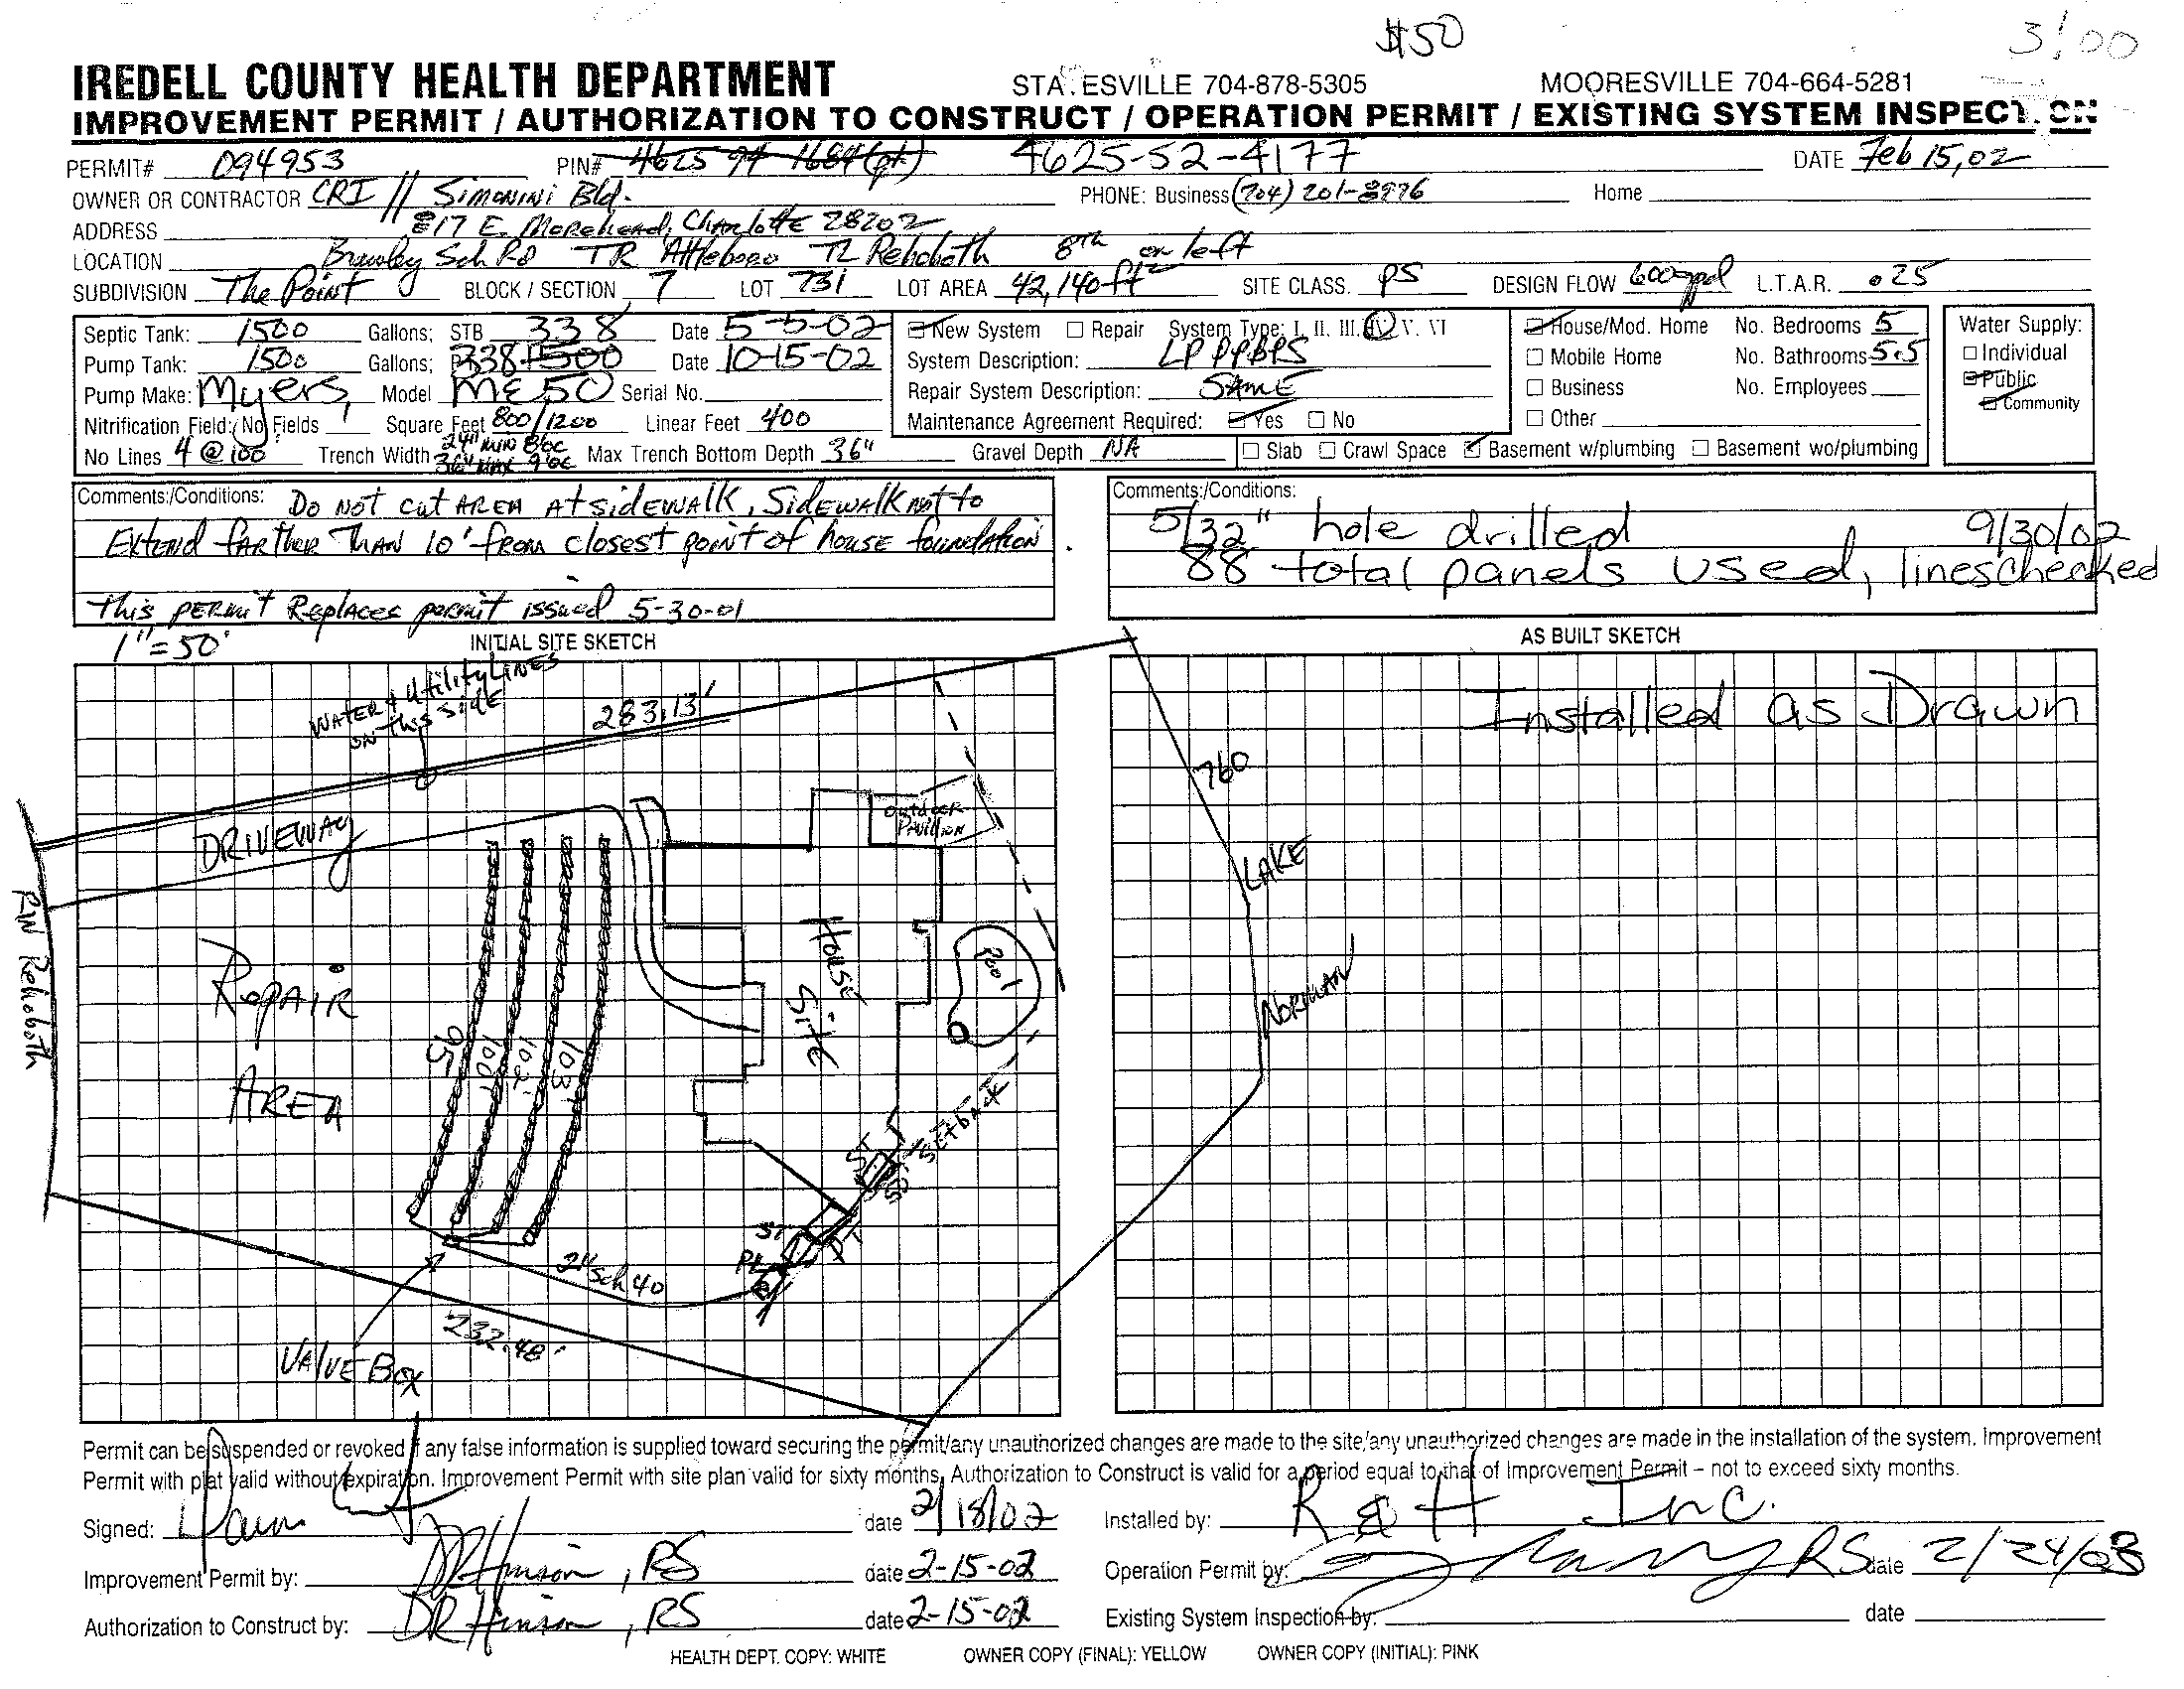 $50
3/00
IREDELL COUNTY HEALTH DEPARTMENT STA.ESVILLE 704-878-5305 MOORESVILLE 704-664-5281
IMPROVEMENT PERMIT / AUTHORIZATION TO CONSTRUCT / OPERATION PERMIT / EXISTING SYSTEM INSPECT. ON
PERMIT# 094953 PIN# 4625-52-4177 DATE Feb 15, 02
OWNER OR CONTRACTOR CRI // Simonini Bld. PHONE: Business (704) 201-8976 Home
ADDRESS 817 E. Morehead, Charlotte 28202
LOCATION Brawley Sch Rd TR Attleboro TL Rehoboth 8th on left
SUBDIVISION The Point BLOCK / SECTION 7 LOT 731 LOT AREA 42,140 ft² SITE CLASS. PS DESIGN FLOW 600gpd L.T.A.R. .025
Septic Tank: 1500 Gallons; STB 338 Date 5-5-02
Pump Tank: 1500 Gallons; 338 1500 Date 10-15-02
Pump Make: Myers, Model ME 50 Serial No.
Nitrification Field:/ No Fields Square Feet 800/1200 Linear Feet 400
No Lines 4 @ 100 Trench Width 24" MIN 8'OC 36" MAX 9'OC Max Trench Bottom Depth 36" Gravel Depth NA
New System Repair System Type: I. II. III. IV V. VI
System Description: LP PPBPS
Repair System Description: SAME
Maintenance Agreement Required: Yes No
Slab Crawl Space Basement w/plumbing Basement wo/plumbing
House/Mod. Home No. Bedrooms 5
Mobile Home No. Bathrooms 5.5
Business No. Employees
Other
Water Supply:
Individual
Public
Community
Comments:/Conditions: Do not cut AREA At sidewalk, Sidewalk not to
Extend farther than 10' from closest point of house foundation.
This permit Replaces permit issued 5-30-01
Comments:/Conditions:
5/32" hole drilled 9/30/02
88 total panels used, lines checked
1"=50'
INITIAL SITE SKETCH
AS BUILT SKETCH
WATER & Utility LINES
ON this side
283.13'
Installed as Drawn
760
OUTDOOR
PAVILLION
DRIVEWAY
LAKE
NORMAN
R/W Rehoboth
REPAIR
AREA
95
100
102
103
HOUSE
SITE
Pool
50' Setback
ST
ST
PT
PT
2" Sch 40
232.48'
VALVE BOX
Permit can be suspended or revoked if any false information is supplied toward securing the permit/any unauthorized changes are made to the site/any unauthorized changes are made in the installation of the system. Improvement
Permit with plat valid without expiration. Improvement Permit with site plan valid for sixty months. Authorization to Construct is valid for a period equal to that of Improvement Permit – not to exceed sixty months.
Signed: date 2/18/02 Installed by: R & H Inc.
Improvement Permit by: DR Hinson, RS date 2-15-02 Operation Permit by: RS date 2/24/03
Authorization to Construct by: DR Hinson, RS date 2-15-02 Existing System Inspection by: date
HEALTH DEPT. COPY: WHITE OWNER COPY (FINAL): YELLOW OWNER COPY (INITIAL): PINK